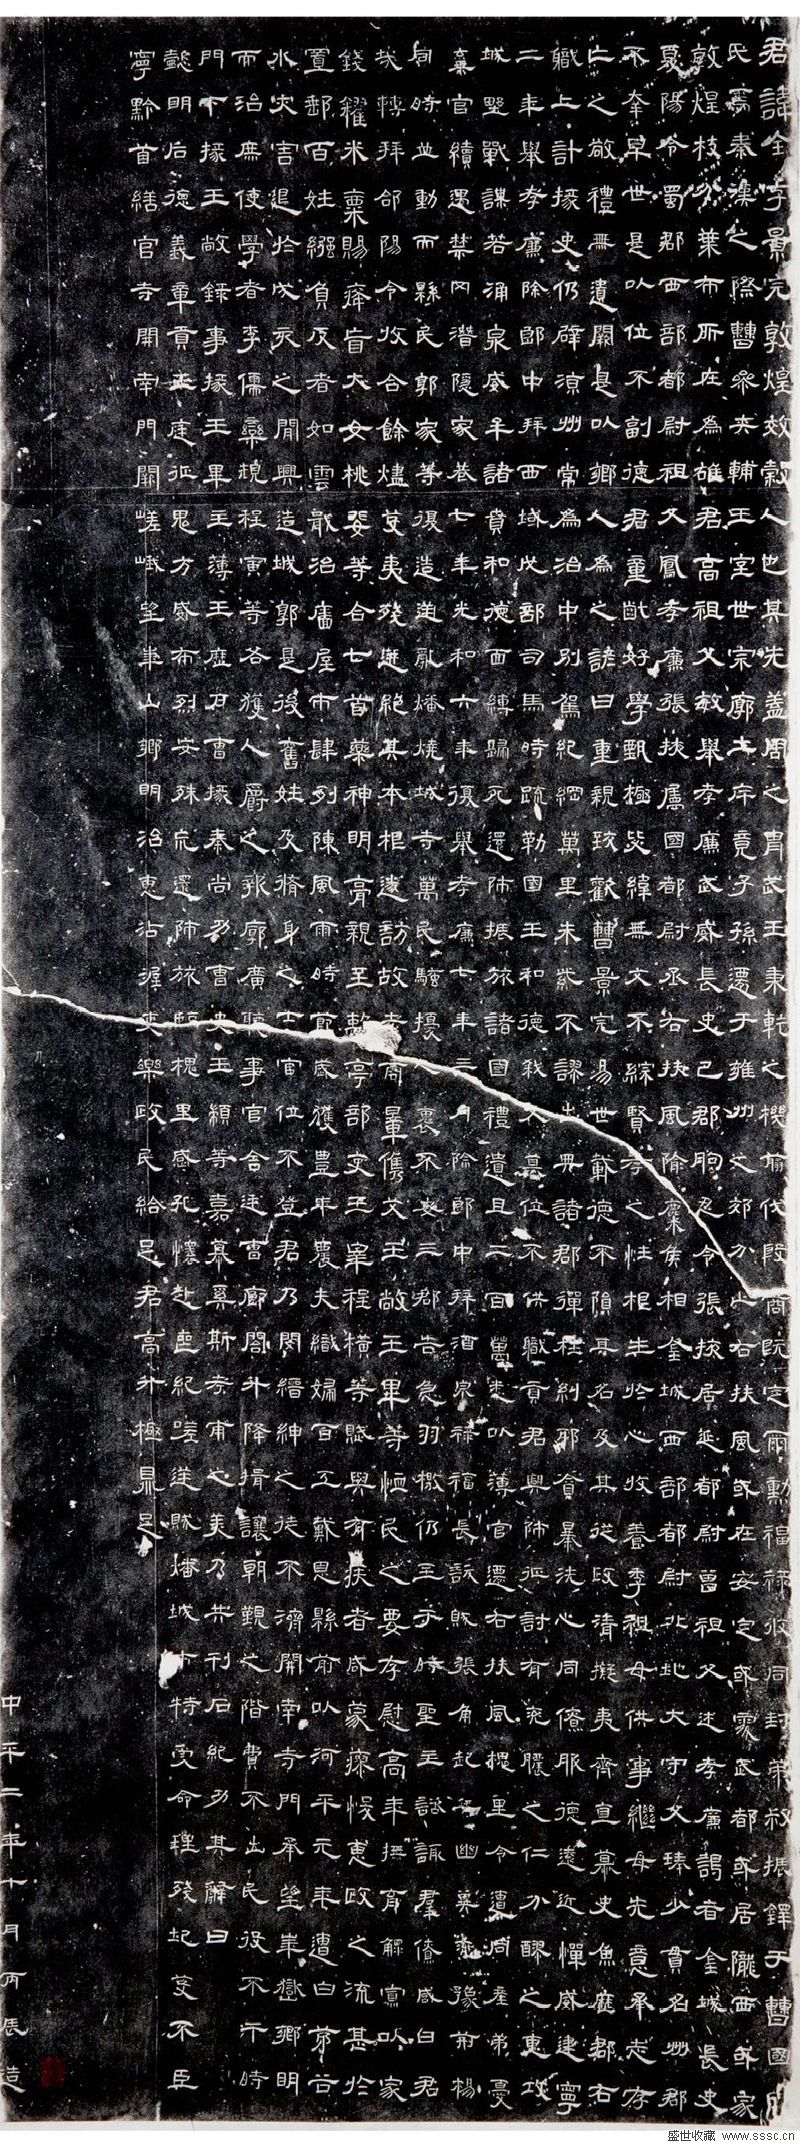 君諱全字景完敦煌效穀人也其先蓋周之冑武王秉乾之機翦伐殷商既定爾勳福祿攸同封弟叔振鐸于曹國因
氏焉秦漢之際曹參夾輔王室世宗廓土斥竟子孫遷于雍州之郊分止右扶風或在安定或處武都或居隴西或家
敦煌枝分葉布所在為雄君高祖父敏舉孝廉武威長史巴郡朐忍令張掖居延都尉曾祖父述孝廉謁者金城長史
夏陽令蜀郡西部都尉祖父鳳孝廉張掖屬國都尉丞右扶風隃麋侯相金城西部都尉北地大守父琫少貫名州郡
不幸早世是以位不副德君童齔好學甄極毖緯無文不綜賢孝之性根生於心收養季祖母供事繼母先意承志存
亡之敬禮無遺闕是以鄉人為之諺曰重親致歡曹景完易世載德不隕其名及其從政清擬夷齊直慕史魚歷郡右
職上計掾史仍辟涼州常為治中別駕紀綱萬里朱紫不謬出典諸郡彈枉糾邪貪暴洗心同僚服德遠近憚威建寧
二年舉孝廉除郎中拜西域戊部司馬時疏勒國王和德弒父篡位不供職貢君興師征討有兗膿之仁分醪之惠攻
城野戰謀若涌泉威牟諸賁和德面縛歸死還師振旅諸國禮遺且二百萬悉以薄官遷右扶風槐里令遭同產弟憂
棄官續遇禁冈潛隱家巷七年光和六年復舉孝廉七年三月除郎中拜酒泉祿福長訞賊張角起兵幽冀兗豫荊楊
同時並動而縣民郭家等復造逆亂燔燒城寺萬民騷擾人裹不安三郡告急羽檄仍至于時聖主諮諏群僚咸曰君
哉轉拜郃陽令收合餘燼芟夷殘迸絕其本根遂訪故老商量儁艾王敞王畢等恤民之要存慰高年撫育鰥寡以家
錢糴米粟賜癃盲大女桃斐等合七首藥神明膏親至離亭部吏王宰程橫等賦與有疾者咸蒙瘳悛惠政之流甚於
置郵百姓繈負反者如雲戢治廧屋市肆列陳風雨時節歲獲豐年農夫織婦百工戴恩縣前以河平元年遭白茅谷
水災害退於戊亥之間興造城郭是後舊姓及脩身之士官位不登君乃閔縉紳之徒不濟開南寺門承望華嶽鄉明
而治庶使學者李儒欒規程寅等各獲人爵之報廓廣聽事官舍廷曹廊閣升降揖讓朝覲之階費不出民役不干時
門下掾王敞錄事掾王畢主薄王歷戶曹掾秦尚功曹史王顓等嘉慕奚斯考甫之美乃共刊石紀功其辭曰
懿明后德義章貢王庭征鬼方威布烈安殊荒還師旅臨槐里感孔懷赴喪紀嗟逆賊燔城市特受命理殘圮芟不臣
寧黔首繕官寺開南門闕嵯峨望華山鄉明治惠沾渥吏樂政民給足君高升極鼎足
中平二年十月丙辰造
盛世收藏 www.sssc.cn